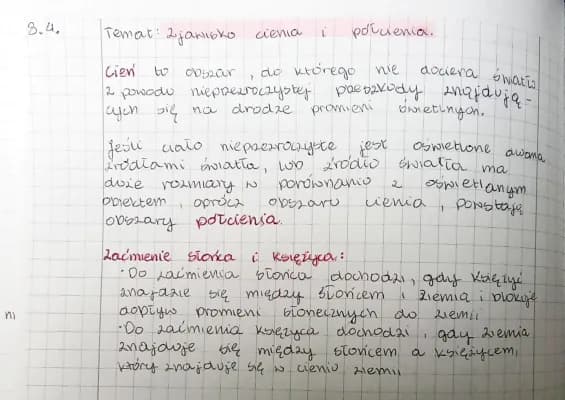 3.4. Temat: Zjawisko cienia i półcienia.
Cień to obszar, do którego nie dociera światło
z powodu nieprzezroczystej przeszkody znajdują-
cych się na drodze promieni świetlnych.
Jeśli ciało nieprzezroczyste jest oświetlone dwoma
źródłami światła, lub źródło światła ma
duże rozmiary w porównaniu z oświetlanym
obiektem, oprócz obszaru cienia, powstają
obszary półcienia.
Zaćmienie słońca i księżyca:
· Do zaćmienia słońca dochodzi, gdy księżyc
znajdzie się między słońcem i ziemią i blokuje
dopływ promieni słonecznych do ziemi.
· Do zaćmienia księżyca dochodzi, gdy ziemia
znajduje się między słońcem a księżycem,
który znajduje się w cieniu ziemi.